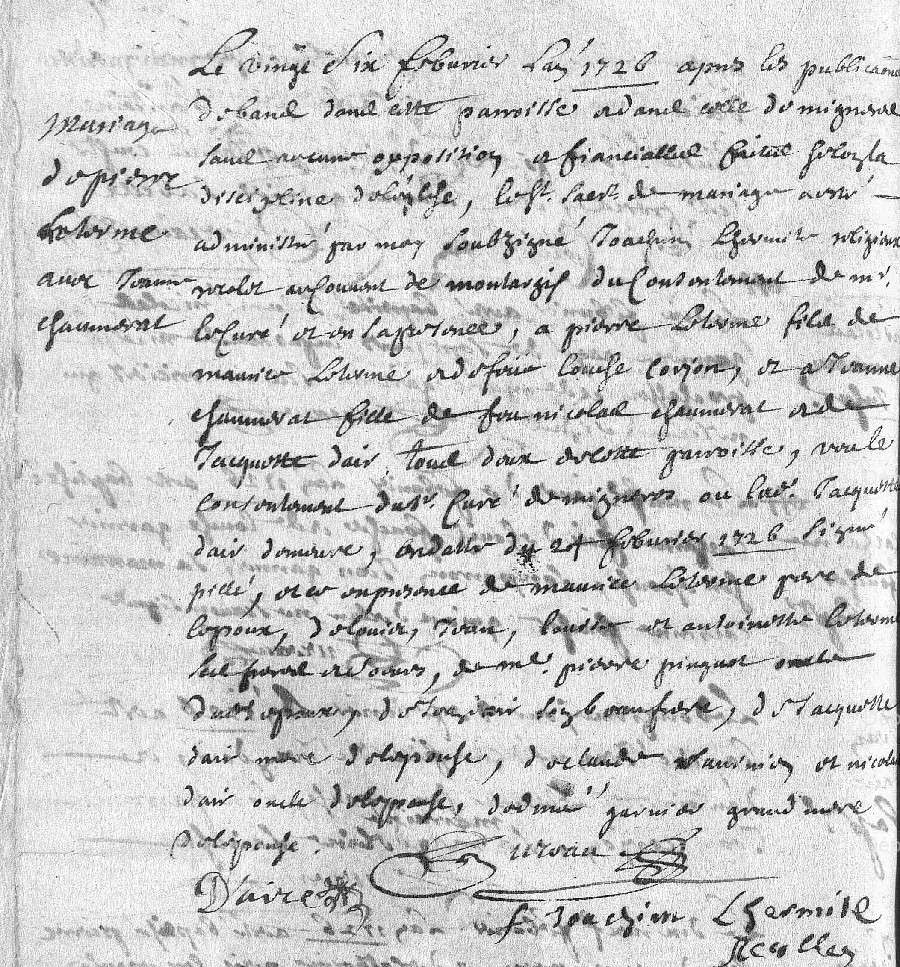 Mariage
de pierre
Leterme
avec Jeanne
chaumerat
Le vingt Six februrier Lan 1726 apres les publications
de bans dans cette parroisse et dans celle de migneres
sans aucune opposition et fianciallles faites selon la
discipline de leglise, le st. sacrt. de mariage a esté
administré par moy soubzigné Joachim Lhermite religieux
recolet au Couvent de montargis du Consentement de mr.
le Curé et en sa presence, a pierre Leterme fils de
maurice Leterme et defuncte louise et a Jeanne
chaumerat fille de feu nicolas chaumerat et de
Jacquette dair tous deux de cette parroisse, veu le
Consentement du sr. Curé de migneres ou lad. Jacquette
dair demeure, en datte du 24 februrier 1726 signé
et ce en presence de maurice Leterme pere de
lepoux, de louis, Jean, louise et antoinette leterme
ses freres et soeurs, de me. pierre pinguot oncle
dudt epoux, de dair son beaufrere, de Jacquette
dair mere de lepouse, de claude et nicolas
dair oncle de lepouse, garnier grand mere
de lepouse.
Daire
f. Joachim Lhermite
Recollet